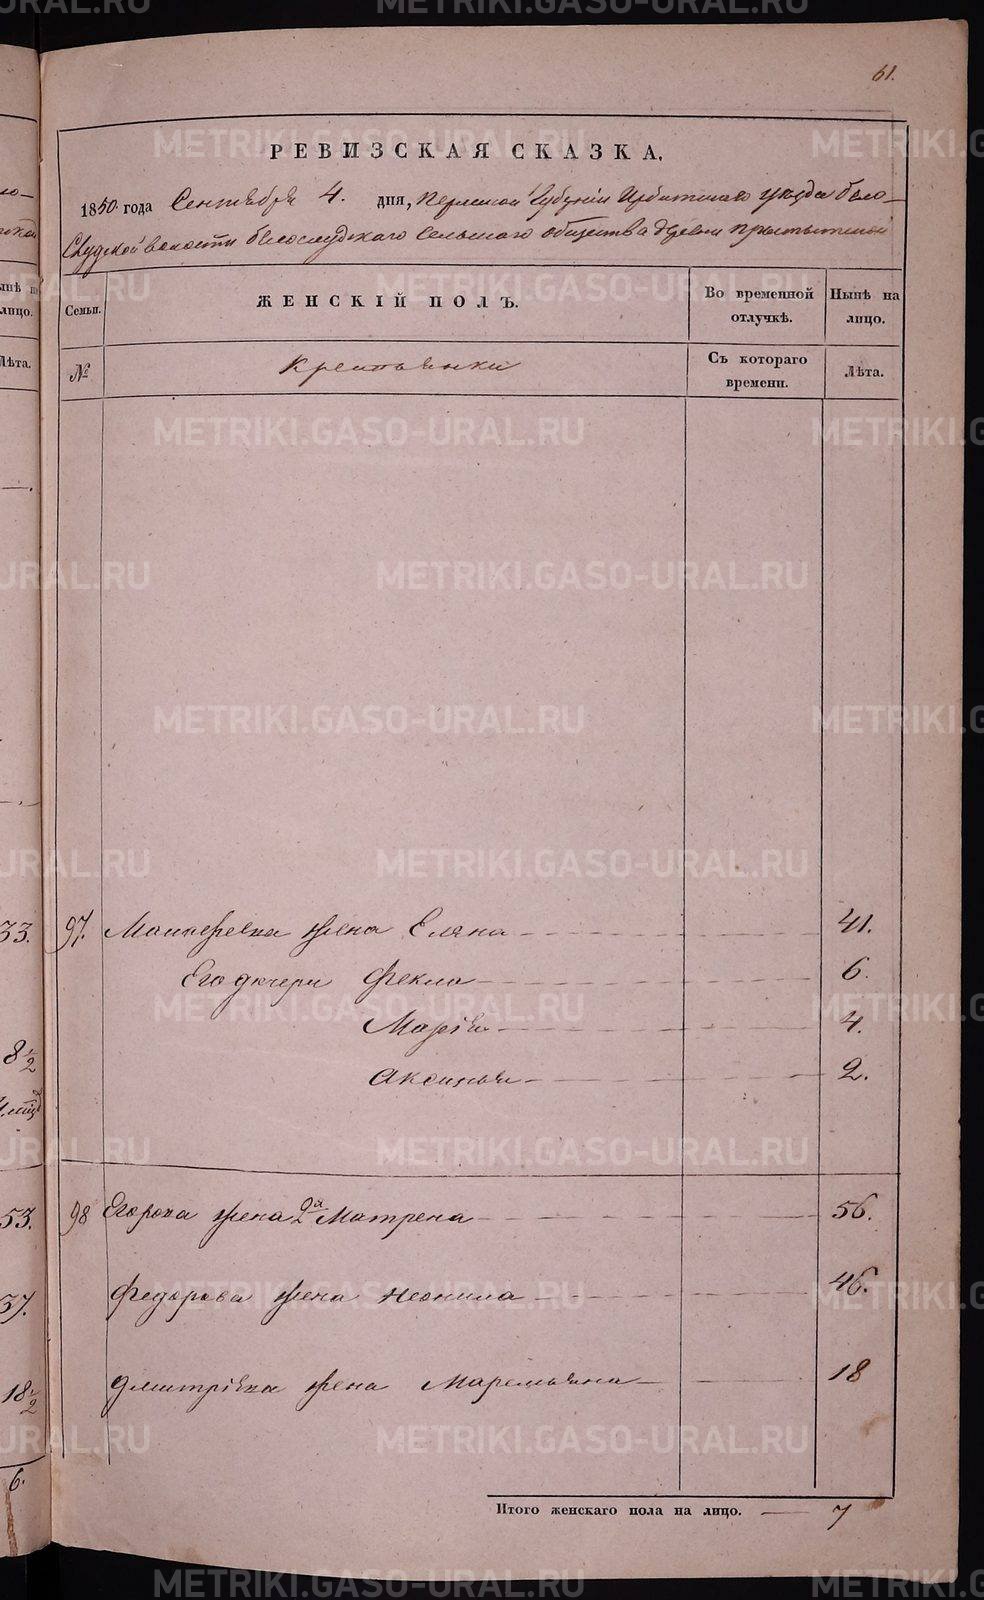 61.
РЕВИЗСКАЯ СКАЗКА.
1850 года Сентября 4. дня, Пермской Губерніи Ирбитскаго уезда бело-
Слудской волости белослудскаго Сельскаго общества деревни
Семьи. ЖЕНСКІЙ ПОЛЪ. Во временной отлучкѣ. Нынѣ на лицо.
№ Крестьянки Съ котораго времени. Лѣта.
97. жена Еляна 41.
Его дочери Фекла 6.
Марѳа 4.
Аксинья 2.
98 Егорова жена 2й Матрена 56.
Федорова жена Неонила 46.
Дмитріева жена Маремьяна 18
Итого женскаго пола на лицо. 7
33.
8 1/2
53.
37.
18 1/2
6.
METRIKI.GASO-URAL.RU